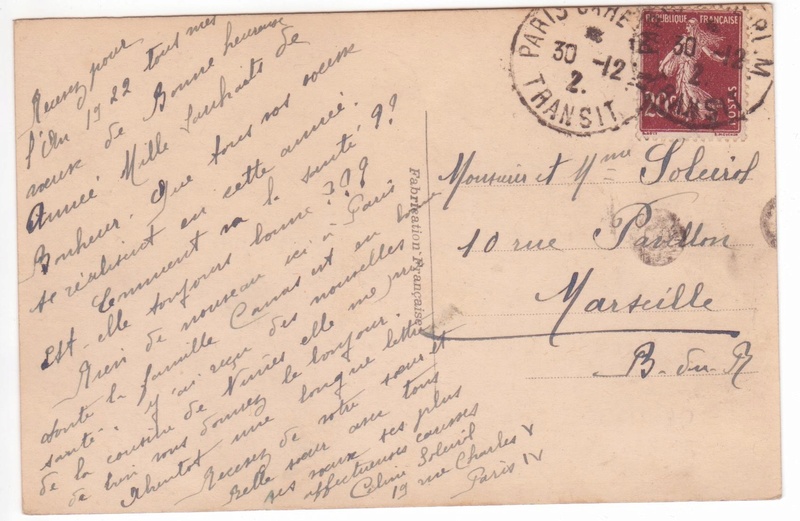 Recevez pour
l'An 1922 tous mes
vœux de Bonne heureuse
Année Mille Souhaits de
Bonheur. Que tous vos vœux
se réalisent en cette année.
Comment va la santé ??
Est-elle toujours bonne ???
Rien de nouveau ici à Paris
toute la famille Camas est en bonne
santé. j'ai reçu des nouvelles
de la cousine de Nimes elle me prie
de bien vous donner le bonjour.
Abientot une longue lettre
Recevez de votre sœur et
Belle sœur avec tous
ses vœux ses plus
affectueuses causses
Soleirol
19 rue Charles V
Paris IV
Fabrication Française
PARIS GARE P.L.M
30 -12
2.
TRANSIT
30 -12
2.
RÉPUBLIQUE FRANÇAISE
20c
POSTES
Monsieur et Mme Soleirol
10 rue Pavillon
Marseille
B-du-R